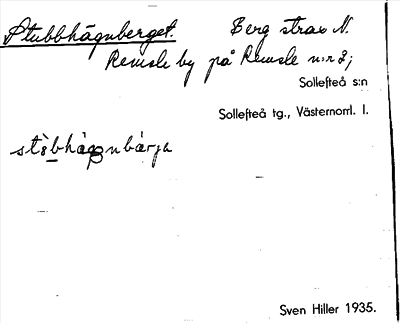 Stubbhägnberget. Berg strax N.
Remsle by på Remsle n:r 2;
Sollefteå s:n
Sollefteå tg., Västernorrl. l.
Sven Hiller 1935.